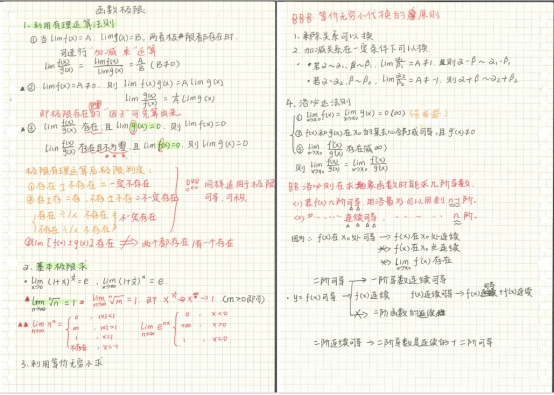 函数极限
1.利用有理运算法则
①当 limf(x)=A, limg(x)=B, 两者极限都存在时,
可进行"加减乘"运算
lim f(x)/g(x) = limf(x)/limg(x) = A/B (B≠0)
▲② limf(x)=A≠0. 则 limf(x)g(x)=Alimg(x)
lim g(x)/f(x) = 1/A limg(x)
即极限存在的"因子"可先算出来
▲③ lim f(x)/g(x) 存在, 且 limg(x)=0, 则 limf(x)=0
lim f(x)/g(x) 存在且不为零, 且 limf(x)=0. 则 limg(x)=0
极限有理运算后极限判定:
①存在±不存在=一定不存在
②存在±=存在, 不存在±不存在=不一定不存在
存在÷/×不存在
不存在÷/×不存在
不一定不存在
同样适用于极限
可导, 可积
③lim[f(x)±g(x)]存在 ⇏ 两个都存在/有一个存在
2.基本极限求
lim(1+x)^(1/x)=e, lim(1+1/x)^x=e
▲ lim ⁿ√n=1
(m>0即可)
▲▲ lim xⁿ= { 0, |x|<1
∞, |x|>1
1, x=1
不存在, x=-1
lim e^(nx) { 0, x<0
+∞, x>0
1, x=0
3.利用等价无穷小求
等价无穷小代换的原则
1.乘除关系可以换
2.加减关系在一定条件下可以换.
·若α~α₁, β~β₁, lim α₁/β₁=A≠1, 且则α-β~α₁-β₁
·若α~α₂, β~β₂, lim α₂/β₂=A≠-1, 则α+β~α₂+β₂
4.洛必达法则
① lim f(x)=lim g(x)=0(∞)
②f(x)和g(x)在x₀的某去心邻域可导, 且g'(x)≠0
③ lim f'(x)/g'(x) 存在(或∞)
则 lim f(x)/g(x) = lim f'(x)/g'(x)
洛必达则在求抽象函数时能求几阶导数
(1)若f(x)n阶可导, 用洛最多可以用到n-1阶,
连续可导 n阶.
因为: f(x)在x₀处可导 → f(x)在x₀处连续
f(x)在x₀处连续
lim f'(x)存在
二阶可导 → 一阶导数连续可导
·y=f(x)可导 → f(x)连续
二阶函数的连续
二阶连续可导 → 二阶导数是连续的+二阶可导